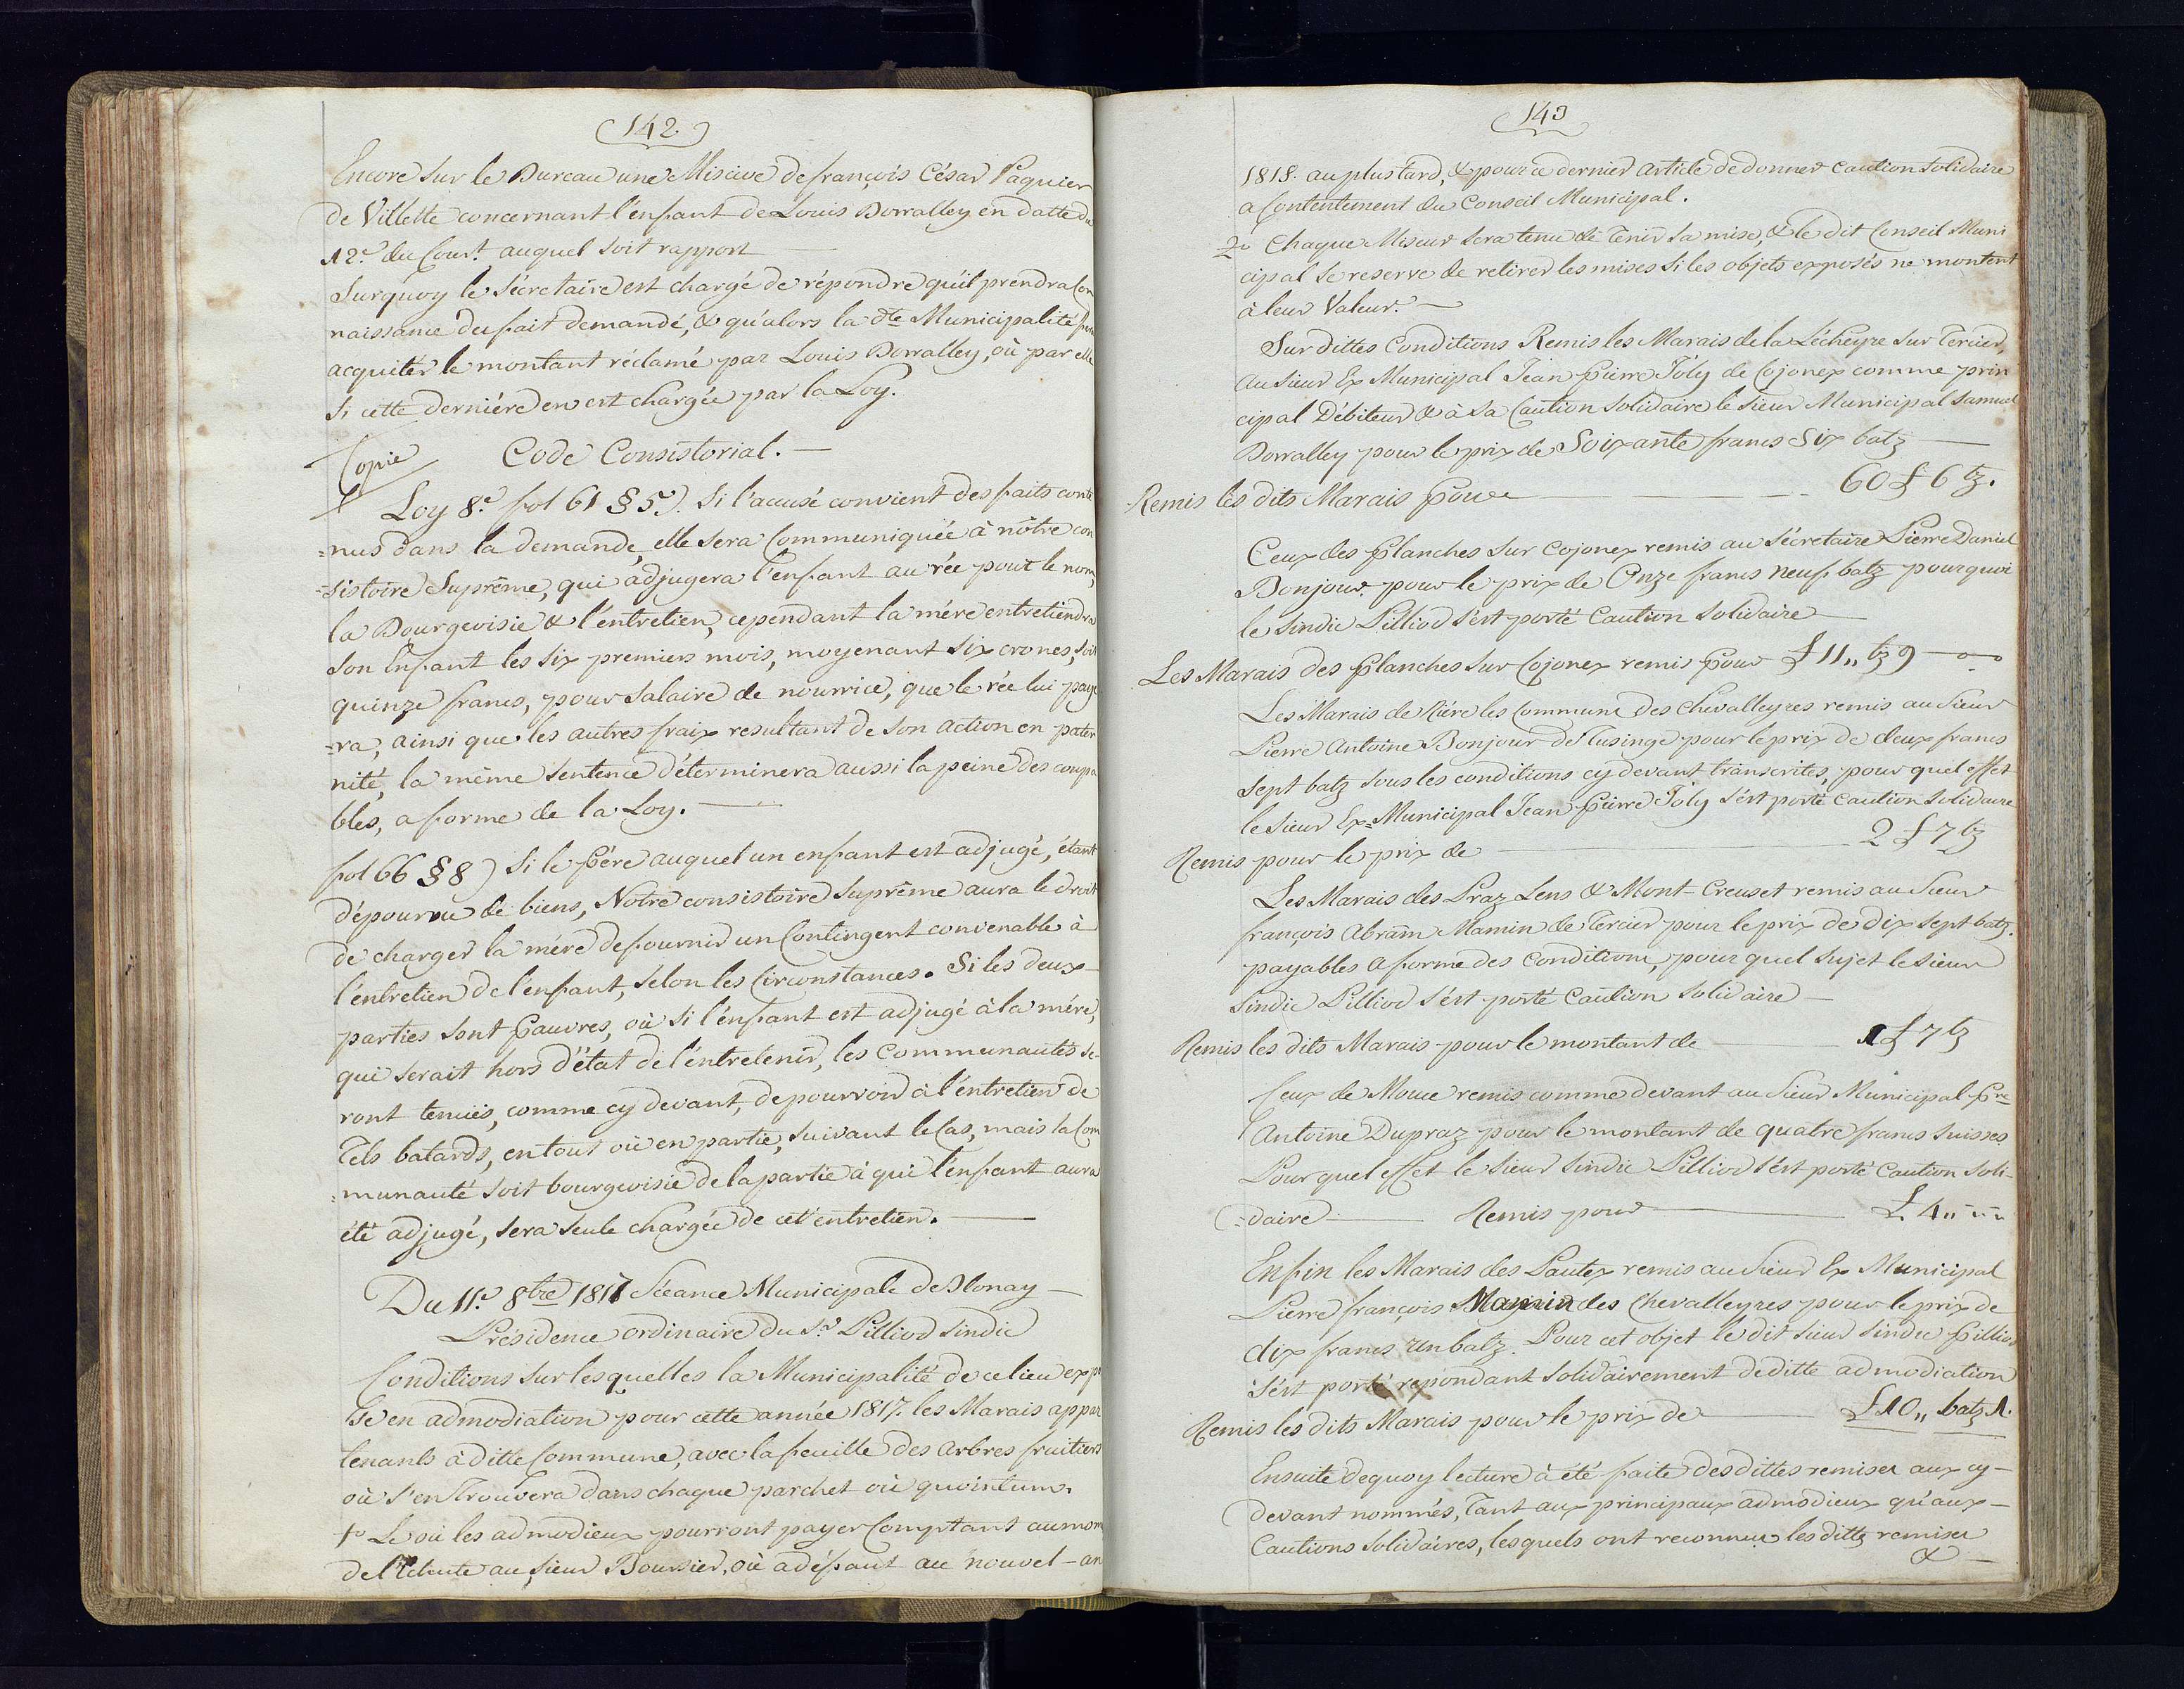 142.
Encore sur le Bureau une Miscive de françois César Paquier
de Villette concernant l'enfant de Louis Dorralley en datte du
12.e du Cour.t auquel soit rapport
Surquoy le sécretaire est chargé de répondre qu'il prendra Con
naissance du fait demandé, & qu'alors la dte Municipalité
acquitér le montant réclamé par Louis Dorralley, où par elle
si cette derniére en est chargée par la Loy.
Copie Code Consistorial. —
Loy 8.e fol 61 § 5.) Si l'accusé convient des faits conte
=nus dans la demande, elle sera Communiquée à nôtre con
=sistoire Suprême, qui adjugera l'enfant au rée pour le nom,
la Bourgeoisie & l'éntretien, cependant la mére entretiendra
son Enfant les six premiers mois, moyenant six crones, soit
quinze francs, pour salaire de nourrice, que le rée lui paye
=ra, ainsi que les autres fraix resultant de son action en pater
nité, la même sentence déterminera aussi la peine des coupa
bles, a forme de la Loy. —
fol 66 § 8) Si le Pére auquel un enfant est adjugé, étant
dépourvu de biens, Notre consistoire Suprême aura le droit
de charger la mére de fournir un Contingent convenable à
l'éntretien de l'enfant, sélon les Circonstances. Si les deux
parties sont Pauvres, où si l'énfant est adjugé à la mére,
qui serait hors d'état de l'éntretenir, les Communautés se-
ront tenues, comme cy devant, de pourvoir à l'éntretien de
Tels batards, en tout où en partie, suivant le Cas, mais la Com
=munauté soit bourgeoisie de la partie à qui l'énfant aura
été adjugé, sera seule chargée de cet entretien. —
Du 11.e 8bre 1817 Séeance Municipale de Blonay —
Présidence ordinaire du S.r Pilliod sindic
Conditions sur lesquelles la Municipalité de ce lieu expo
se en admodiation pour cette année 1817. les Marais appar
tenants à ditte Commune, avec la feuille des arbres fruitiers
où s'en trouvera dans chaque parchet où quointum.
1o Le où les admodieux pourront payer Comptant au mom
de l'Echute au sieur Boursier, où a défaut au nouvel-an
143
1818. au plus tard, & pour ce dernier article de donner caution solidaire
a Contentement du Conseil Municipal.
2o Chaque Miseur sera tenu de Tenir sa mise, & le dit Conseil Muni
cipal se reserve de retirer les mises si les objets exposés ne montent
à leur Valeur. —
Sur dittes Conditions Remis les Marais de la Lécheyre sur Tercier,
au sieur Ex Municipal Jean Pierre Joly de Cojonex comme prin
cipal Débiteur & à sa Caution solidaire le sieur Municipal Samuel
Dorralley pour le prix de Soixante francs Six batz —
Remis les dits Marais Pour — 60 £ 6 bz.
Ceux des Planches sur Cojonex remis au sécretaire Pierre Daniel
Bonjour. pour le prix de Onze francs neuf batz pourquoi
le sindic Pilliod s'ést porté Caution Solidaire —
Les Marais des Planches sur Cojonex remis Pour £ 11,, bz 9 —
Les Marais de Riére les Commune des Chevalleyres remis au Sieur
Pierre Antoine Bonjour de Tusinge pour le prix de deux francs
sept batz sous les conditions cy devant transcrites, pour quel effet
le sieur Ex=Municipal Jean Pierre Joly s'ést porté caution solidaire
Remis pour le prix de — 2 £ 7 bz
Les Marais des Praz Lens & Mont-Creuset remis au Sieur
françois Abram Mamin de Tercier pour le prix de dix sept batz.
payables a forme des Conditions, pour quel sujet le sieur
Sindic Pilliod s'ést porté Caution Solidaire —
Remis les dits Marais pour le montant de — 1 £ 7 bz
Ceux de Mouce remis comme devant au Sieur Municipal Pre
Antoine Dupraz pour le montant de quatre francs suisses
Pour quel effet le sieur Sindic Pilliod s'ést porté Caution Soli-
=daire — Remis pour — £ 4,,
Enfin les Marais des Pautex remis au Sieur Ex Municipal
Pierre françois Mamin des Chevalleyres pour le prix de
dix francs un batz. Pour cet objet le dit sieur sindic Pilliod
s'ést porté repondant solidairement de ditte admodiation
Remis les dits Marais pour le prix de — £ 10,, batz 1.
Ensuite dequoy lecture à été faite des dittes remises aux cy-
devant nommés, Tant aux principaux admodieux qu'aux-
Cautions Solidaires, lesquels ont reconnu les dittz remises
& —